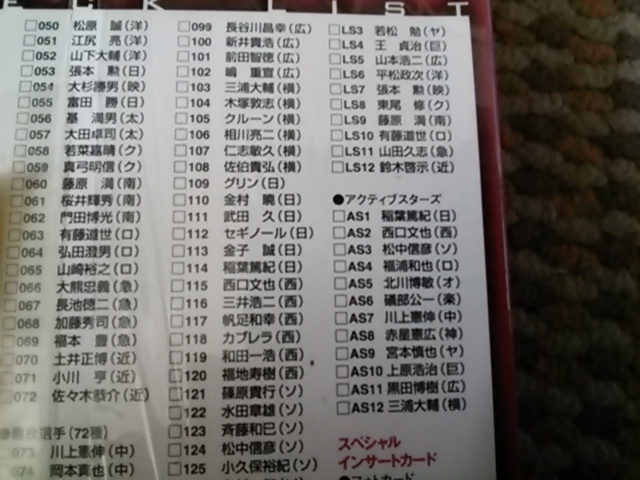 LIST
050 松原 誠(洋)
051 江尻 亮(洋)
052 山下大輔(洋)
053 張本 勲(日)
054 大杉勝男(映)
055 富田 勝(日)
056 基 満男(太)
057 大田卓司(太)
058 若菜嘉晴(ク)
059 真弓明信(ク)
060 藤原 満(南)
061 桜井輝秀(南)
062 門田博光(南)
063 有藤道世(ロ)
064 弘田澄男(ロ)
065 山崎裕之(ロ)
066 大熊忠義(急)
067 長池徳二(急)
068 加藤秀司(急)
069 福本 豊(急)
070 土井正博(近)
071 小川 亨(近)
072 佐々木恭介(近)
現役選手(72種)
073 川上憲伸(中)
074 岡本真也(中)
099 長谷川昌幸(広)
100 新井貴浩(広)
101 前田智徳(広)
102 嶋 重宣(広)
103 三浦大輔(横)
104 木塚敦志(横)
105 クルーン(横)
106 相川亮二(横)
107 仁志敏久(横)
108 佐伯貴弘(横)
109 グリン(日)
110 金村 曉(日)
111 武田 久(日)
112 セギノール(日)
113 金子 誠(日)
114 稲葉篤紀(日)
115 西口文也(西)
116 三井浩二(西)
117 帆足和幸(西)
118 カブレラ(西)
119 和田一浩(西)
120 福地寿樹(西)
121 篠原貴行(ソ)
122 水田章雄(ソ)
123 斉藤和巳(ソ)
124 松中信彦(ソ)
125 小久保裕紀(ソ)
LS3 若松 勉(ヤ)
LS4 王 貞治(巨)
LS5 山本浩二(広)
LS6 平松政次(洋)
LS7 張本 勲(映)
LS8 東尾 修(ク)
LS9 藤原 満(南)
LS10 有藤道世(ロ)
LS11 山田久志(急)
LS12 鈴木啓示(近)
●アクティブスターズ
AS1 稲葉篤紀(日)
AS2 西口文也(西)
AS3 松中信彦(ソ)
AS4 福浦和也(ロ)
AS5 北川博敏(オ)
AS6 礒部公一(楽)
AS7 川上憲伸(中)
AS8 赤星憲広(神)
AS9 宮本慎也(ヤ)
AS10 上原浩治(巨)
AS11 黒田博樹(広)
AS12 三浦大輔(横)
スペシャル
インサートカード
●フォトカード